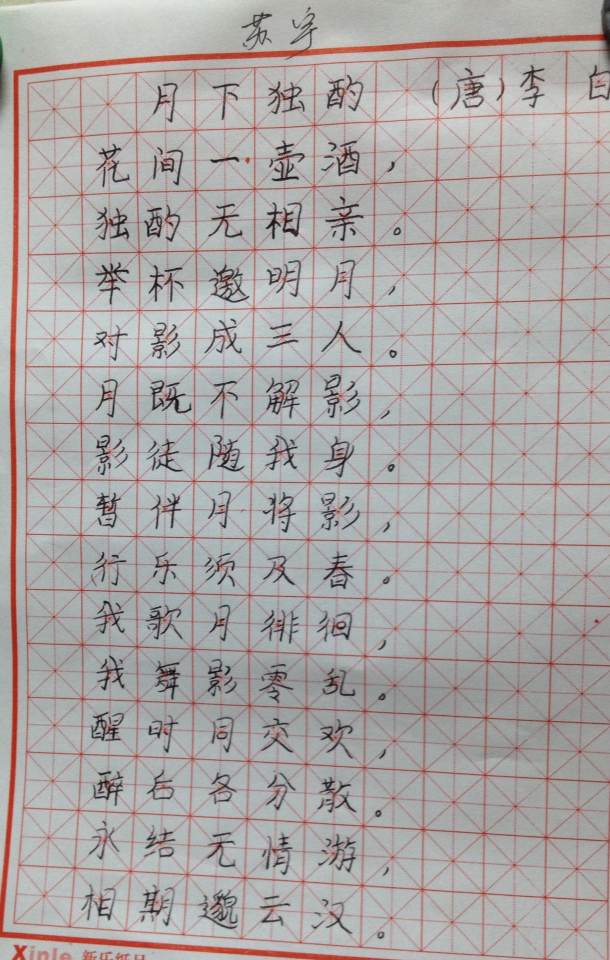 苏宇
月下独酌 (唐)李白
花间一壶酒,
独酌无相亲。
举杯邀明月,
对影成三人。
月既不解影,
影徒随我身。
暂伴月将影,
行乐须及春。
我歌月徘徊,
我舞影零乱。
醒时同交欢,
醉后各分散。
永结无情游,
相期邈云汉。
Xinle 新乐纸品